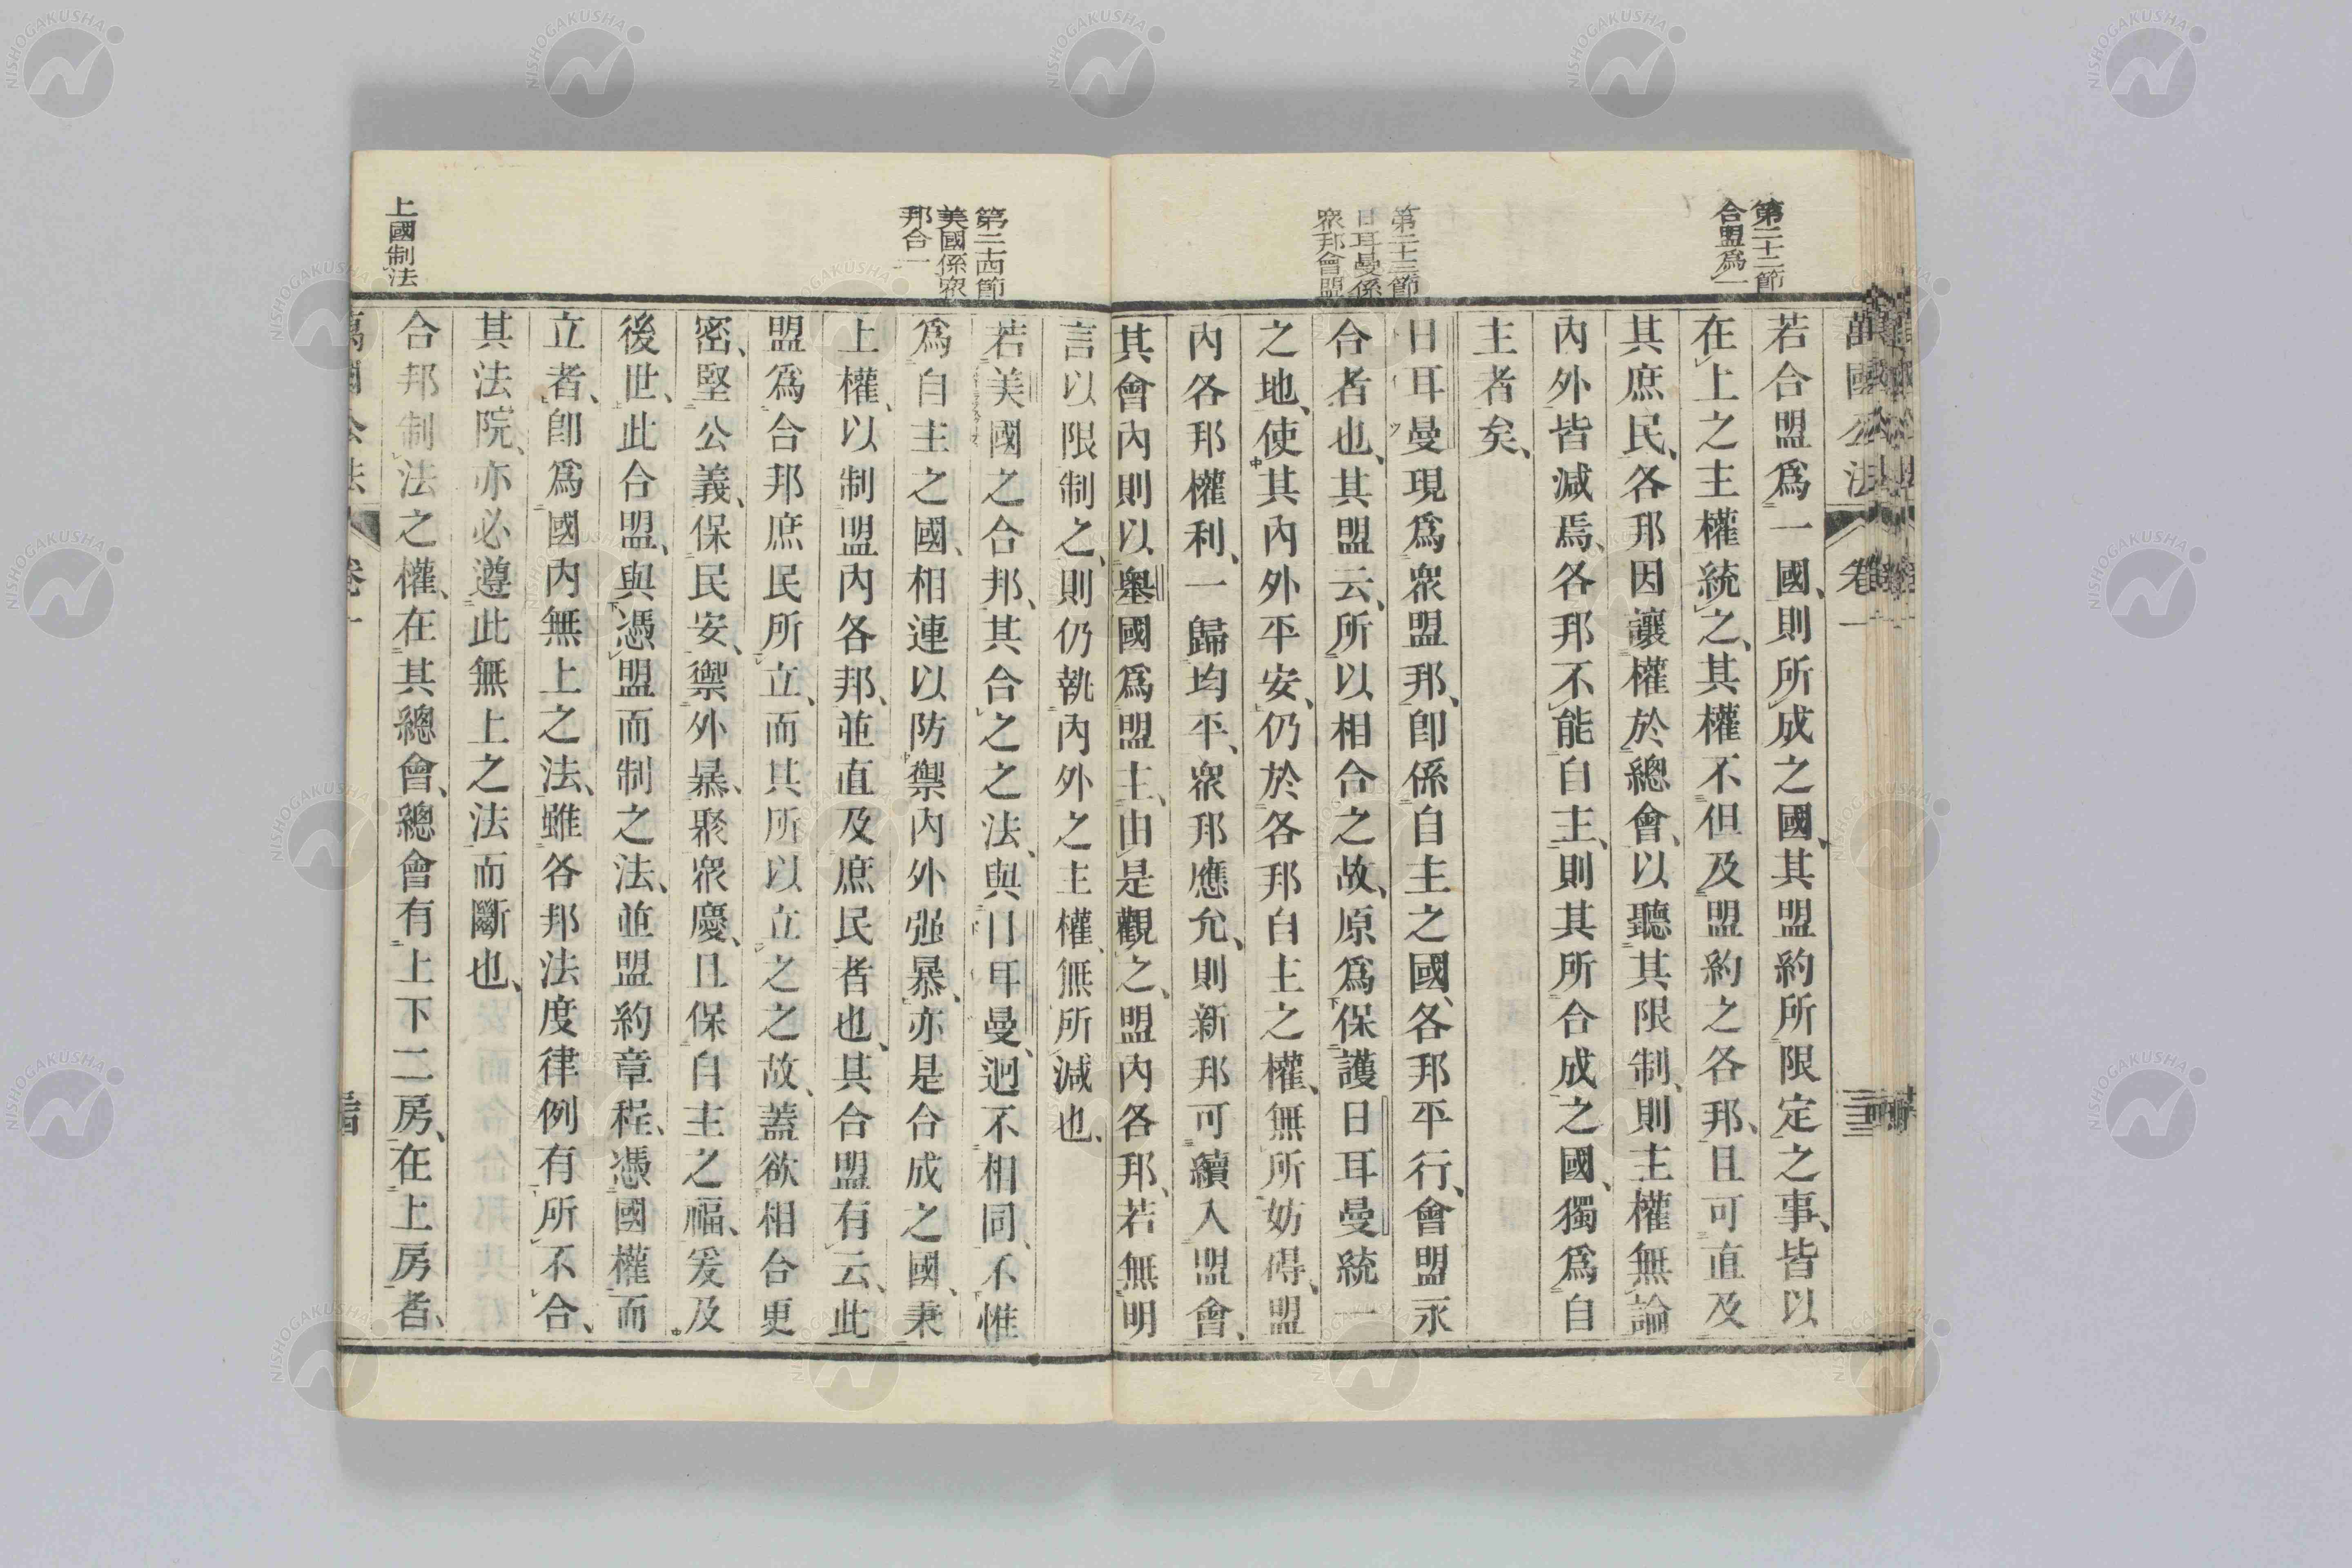 萬國公法 卷一
第二十二節
合盟爲一
若合盟爲一國、則所成之國、其盟約所限定之事、皆以
在上之主權統之、其權不但及盟約之各邦、且可直及
其庶民、各邦因讓權於總會、以聽其限制、則主權無論
內外皆減焉、各邦不能自主、則其所合成之國、獨爲自
主者矣、
第二十三節
日耳曼係
衆邦會盟
日耳曼現爲衆盟邦、卽係自主之國、各邦平行、會盟永
合者也、其盟云、所以相合之故、原爲保護日耳曼統一
之地、使其內外平安、仍於各邦自主之權、無所妨碍、盟
內各邦權利、一歸均平、衆邦應允、則新邦可續入盟會、
其會內則以舉國爲盟主、由是觀之、盟內各邦、若無明
言以限制之、則仍執內外之主權、無所減也、
第二十四節
美國係衆
邦合一
若美國之合邦、其合之之法、與日耳曼、迥不相同、不惟
爲自主之國、相連以防禦內外强暴、亦是合成之國、秉
上權、以制盟內各邦、並直及庶民者也、其合盟有云、此
盟爲合邦庶民所立、而其所以立之之故、蓋欲相合更
密、堅公義、保民安、禦外暴、聚衆慶、且保自主之福、爰及
後世、此合盟、與憑盟而制之法、並盟約章程、憑國權而
立者、卽爲國內無上之法、雖各邦法度律例有所不合、
其法院、亦必遵此無上之法而斷也、
上國制法
合邦制法之權、在其總會、總會有上下二房、在上房者、
萬國公法 卷一
NISHOGAKUSHA